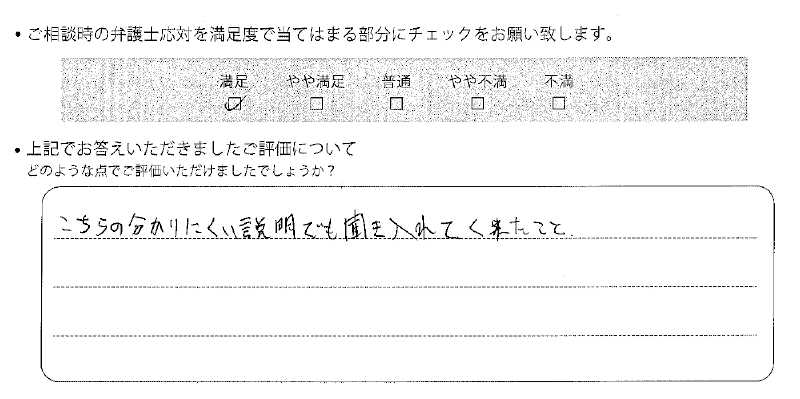 • ご相談時の弁護士応対を満足度で当てはまる部分にチェックをお願い致します。
満足 やや満足 普通 やや不満 不満
☑ ☐ ☐ ☐ ☐
• 上記でお答えいただきましたご評価について
どのような点でご評価いただけましたでしょうか？
こちらの分かりにくい説明でも聞き入れてく来たてと.